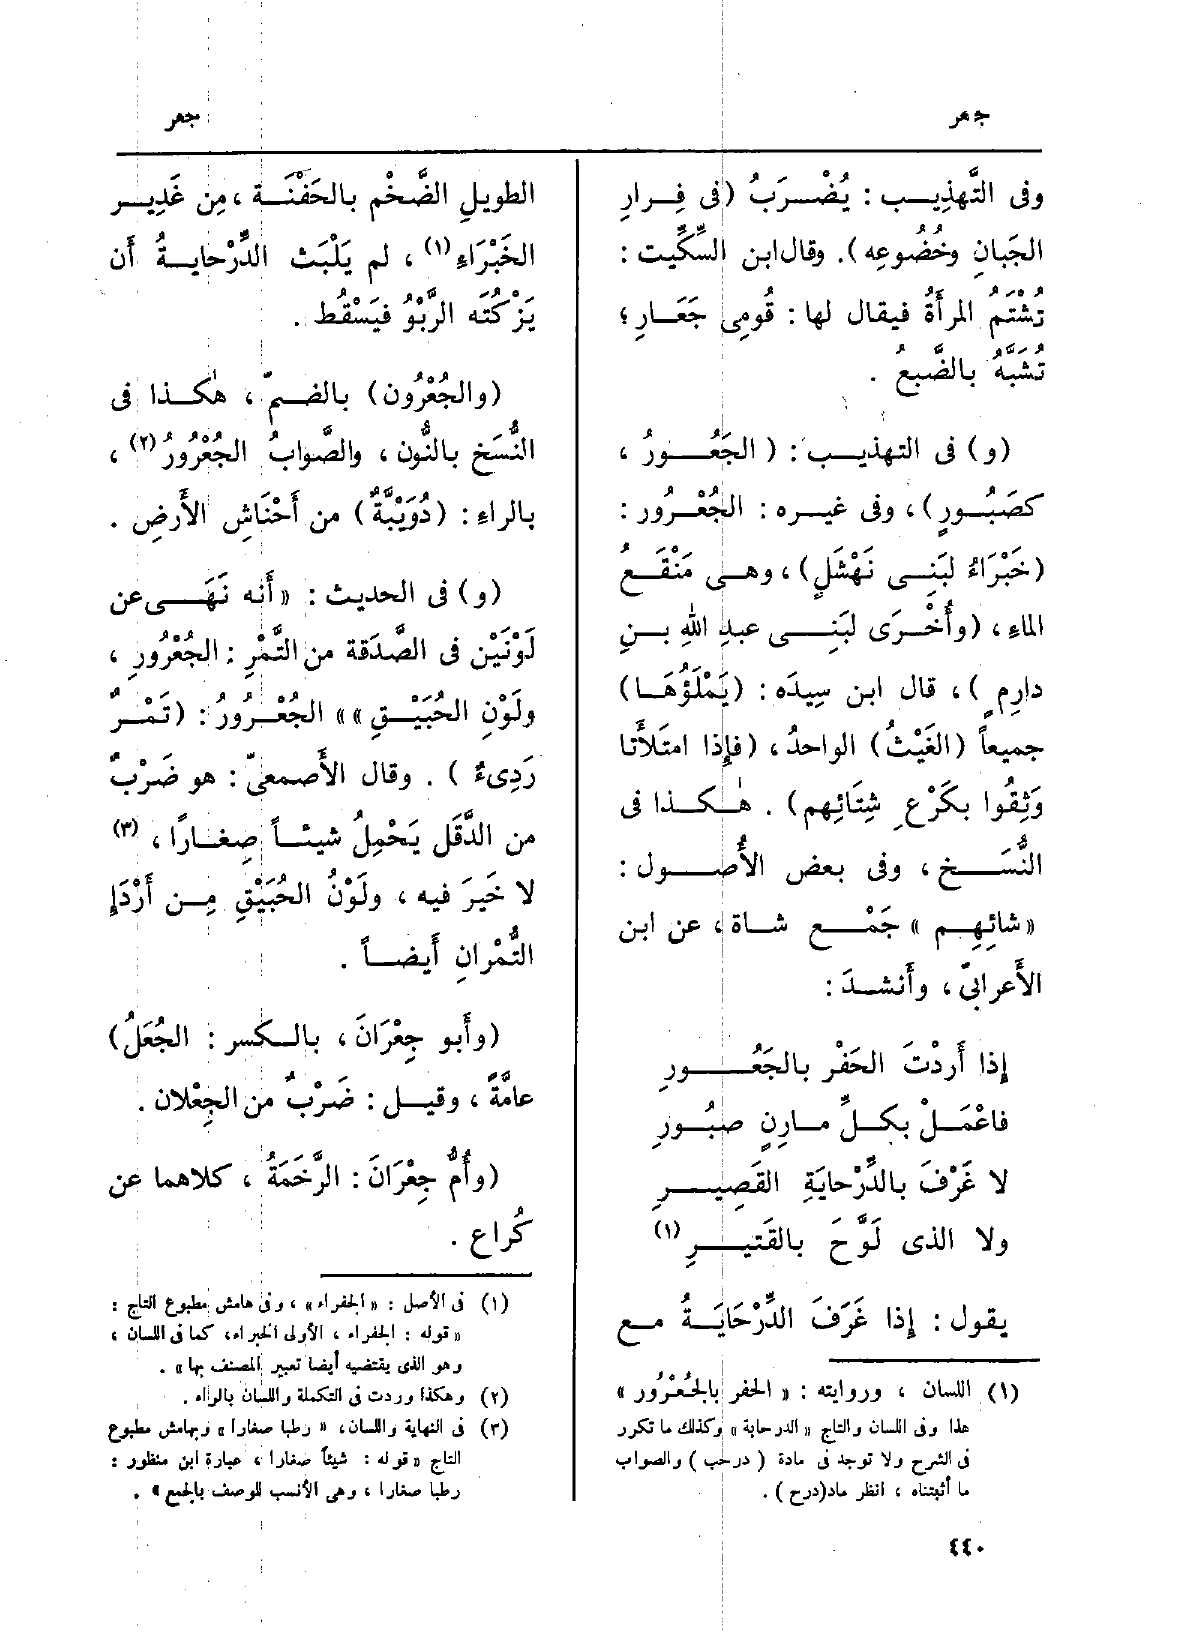 جعر
جعر
وفى التَّهذِيب : يُضْرَبُ (فى فِرارِ
الجَبانِ وخُضُوعِه). وقال ابن السِّكِّيت :
تُشْتَمُ المرأَةُ فيقال لها : قُومِى جَعَارِ ؛
تُشَبَّهُ بالضَّبعُ .
(و) فى التهذيب : ( الجَعُورُ ،
كصَبُورٍ) ، وفى غيره : الجُعْرُور :
(خَبْرَاءُ لبَنِى نَهْشَلٍ) ، وهى مَنْقَعُ
الماءِ ، (وأُخْرَى لبَنِى عبدِ اللهِ بنِ
دارِمٍ ) ، قال ابن سِيدَه : (يَمْلَؤُهَا)
جميعاً (الغَيْثُ) الواحدُ ، (فإِذا امتَلأَتا
وَثِقُوا بكَرْعِ شِتَائِهم) . هٰكذا فى
النُّسَخ ، وفى بعض الأُصول :
« شائِهِم » جَمْع شاة ، عن ابن
الأَعرابىّ ، وأَنشدَ :
إِذا أَردْتَ الحَفْر بالجَعُورِ
فاعْمَلْ بكلِّ مارِنٍ صبُورِ
لا غَرْفَ بالدِّرْحايَةِ القَصِيرِ
ولا الذى لَوَّحَ بالقَتيرِ (١)
يقول : إِذا غَرَفَ الدِّرْحَايَةُ مع
(١) اللسان ، وروايته : « الحفر بالجُعْرُور »
هذا وفى اللسان والتاج « الدرحاية » وكذلك ما تكرر
فى الشرح ولا توجد فى مادة ( درحب ) والصواب
ما أثبتناه ، انظر ماد(درح ) .
الطويلِ الضَّخْم بالحَفْنَة ، مِن غَدِير
الخَبْرَاءِ (١) ، لم يَلْبَث الدِّرْحايةُ أَن
يَزْكُتَه الرَّبْوُ فيَسْقُط .
(والجُعْرُون) بالضمّ ، هٰكذا فى
النُّسَخ بالنُّون ، والصَّوابُ الجُعْرُورُ (٢) ،
بالراءِ : (دُوَيْبَّةٌ) من أَحْنَاشِ الأَرضِ .
(و) فى الحديث : « أَنه نَهَى عن
لَوْنَيْن فى الصَّدَقة من التَّمْرِ : الجُعْرُورِ ،
ولَوْنِ الحُبَيْقِ » « الجُعْرُورُ : (تَمْرٌ
رَدِىءٌ ) . وقال الأَصمعىّ : هو ضَرْبٌ
من الدَّقَل يَحْمِلُ شيئاً صِغارًا ، (٣)
لا خَيرَ فيه ، ولَوْنُ الحُبَيْقِ مِن أَرْدَإِ
التُّمْرانِ أَيضاً .
(وأَبو جِعْرَانَ ، بالكسر : الجُعَلُ)
عامَّةً ، وقيل : ضَرْبٌ من الجِعْلان .
(وأُمُّ جِعْرَانَ : الرَّخَمَةُ ، كلاهما عن
كُراع .
(١) فى الأصل : « الحفراء » ، وفى هامش مطبوع التاج :
« قوله : الحفراء ، الأولى الخبراء، كما فى اللسان ،
وهو الذى يقتضيه أيضا تعبير المصنف بها » .
(٢) وهكذا وردت فى التكملة واللسان بالراء .
(٣) فى النهاية واللسان، « رطبا صغارا » وبهامش مطبوع
التاج « قوله : شيئاً صغارا ، عبارة ابن منظور :
رطبا صغارا ، وهى الأنسب للوصف بالجمع » .
٤٤٠